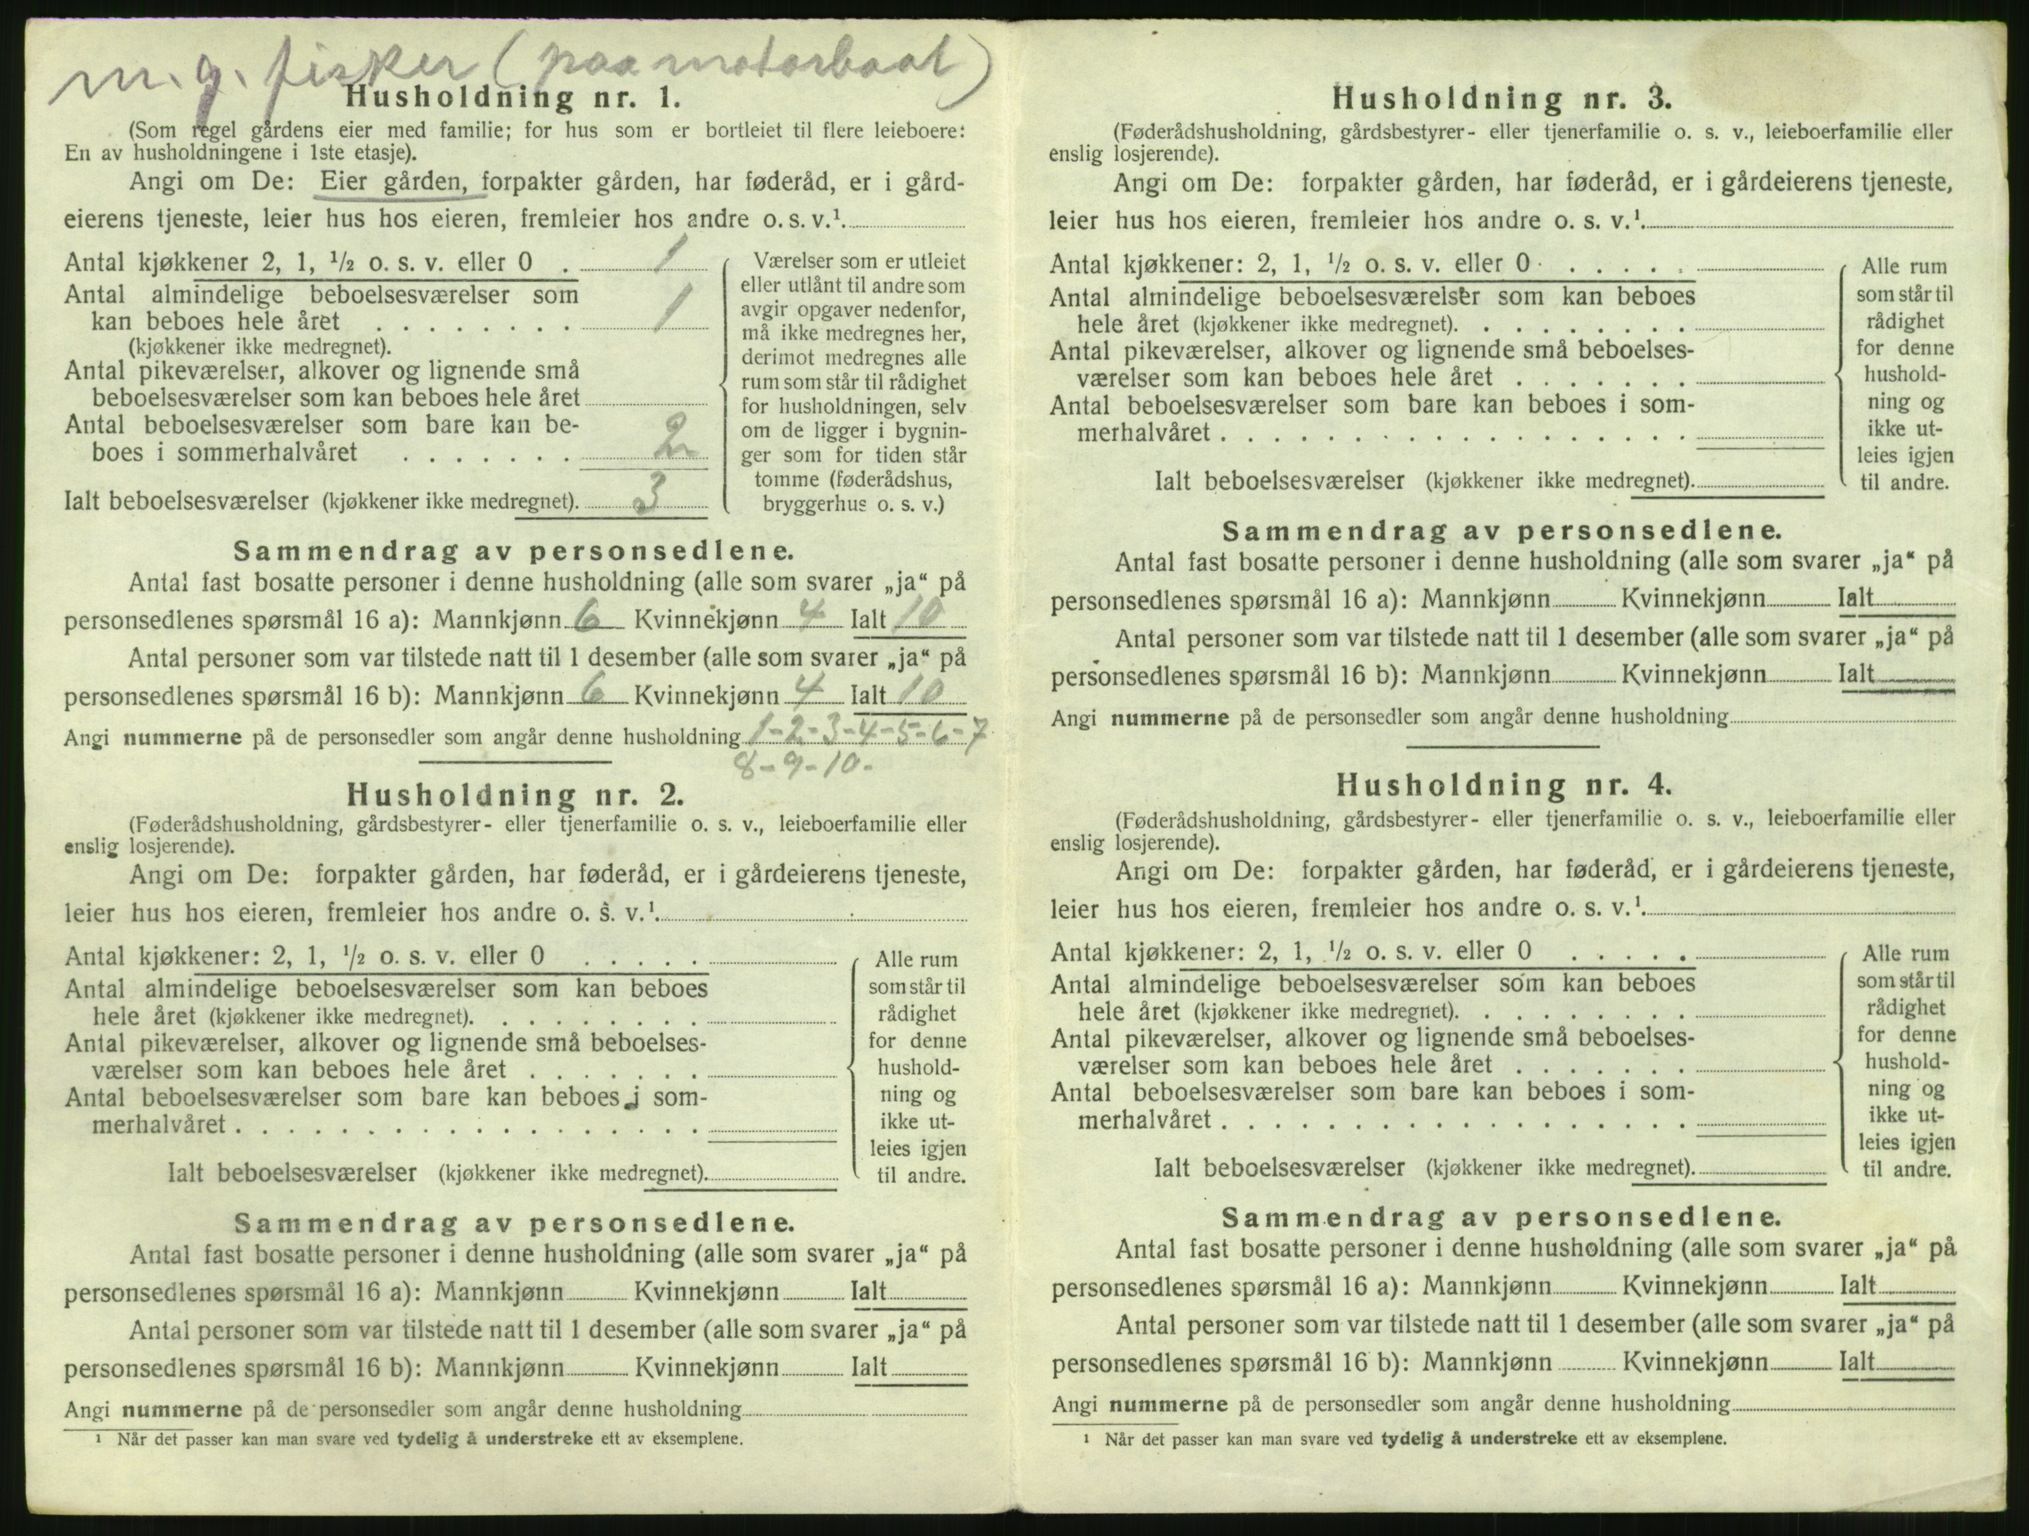 m. g. fisker (paa motorbaat)
Husholdning nr. 1.
(Som regel gårdens eier med familie; for hus som er bortleiet til flere leieboere:
En av husholdningene i 1ste etasje).
Angi om De: Eier gården, forpakter gården, har føderåd, er i gård-
eierens tjeneste, leier hus hos eieren, fremleier hos andre o. s. v.¹.
Antal kjøkkener 2, 1, ½ o. s. v. eller 0 . 1
Antal almindelige beboelsesværelser som
kan beboes hele året . . . . . . . . 1
(kjøkkener ikke medregnet).
Antal pikeværelser, alkover og lignende små
beboelsesværelser som kan beboes hele året
Antal beboelsesværelser som bare kan be-
boes i sommerhalvåret . . . . . . . 2
Ialt beboelsesværelser (kjøkkener ikke medregnet). 3
Værelser som er utleiet
eller utlånt til andre som
avgir opgaver nedenfor,
må ikke medregnes her,
derimot medregnes alle
rum som står til rådighet
for husholdningen, selv
om de ligger i bygnin-
ger som for tiden står
tomme (føderådshus,
bryggerhus o. s. v.)
Sammendrag av personsedlene.
Antal fast bosatte personer i denne husholdning (alle som svarer „ja“ på
personsedlenes spørsmål 16 a): Mannkjønn 6 Kvinnekjønn 4 Ialt 10
Antal personer som var tilstede natt til 1 desember (alle som svarer „ja“ på
personsedlenes spørsmål 16 b): Mannkjønn 6 Kvinnekjønn 4 Ialt 10
Angi nummerne på de personsedler som angår denne husholdning 1-2-3-4-5-6-7
8-9-10-
Husholdning nr. 2.
(Føderådshusholdning, gårdsbestyrer- eller tjenerfamilie o. s. v., leieboerfamilie eller
enslig losjerende).
Angi om De: forpakter gården, har føderåd, er i gårdeierens tjeneste,
leier hus hos eieren, fremleier hos andre o. s. v.¹.
Antal kjøkkener: 2, 1, ½ o. s. v. eller 0 . . . . .
Antal almindelige beboelsesværelser som kan beboes
hele året (kjøkkener ikke medregnet). . . . . . . . .
Antal pikeværelser, alkover og lignende små beboelses-
værelser som kan beboes hele året . . . . . . .
Antal beboelsesværelser som bare kan beboes i som-
merhalvåret . . . . . . . . . . . . . . . . . .
Ialt beboelsesværelser (kjøkkener ikke medregnet).
Alle rum
som står til
rådighet
for denne
hushold-
ning og
ikke ut-
leies igjen
til andre.
Sammendrag av personsedlene.
Antal fast bosatte personer i denne husholdning (alle som svarer „ja“ på
personsedlenes spørsmål 16 a): Mannkjønn Kvinnekjønn Ialt
Antal personer som var tilstede natt til 1 desember (alle som svarer „ja“ på
personsedlenes spørsmål 16 b): Mannkjønn Kvinnekjønn Ialt
Angi nummerne på de personsedler som angår denne husholdning
¹ Når det passer kan man svare ved tydelig å understreke ett av eksemplene.
Husholdning nr. 3.
(Føderådshusholdning, gårdsbestyrer- eller tjenerfamilie o. s. v., leieboerfamilie eller
enslig losjerende).
Angi om De: forpakter gården, har føderåd, er i gårdeierens tjeneste,
leier hus hos eieren, fremleier hos andre o. s. v.¹.
Antal kjøkkener: 2, 1, ½ o. s. v. eller 0 . . . . .
Antal almindelige beboelsesværelser som kan beboes
hele året (kjøkkener ikke medregnet). . . . . . . . .
Antal pikeværelser, alkover og lignende små beboelses-
værelser som kan beboes hele året . . . . . . .
Antal beboelsesværelser som bare kan beboes i som-
merhalvåret . . . . . . . . . . . . . . . . . .
Ialt beboelsesværelser (kjøkkener ikke medregnet).
Alle rum
som står til
rådighet
for denne
hushold-
ning og
ikke ut-
leies igjen
til andre.
Sammendrag av personsedlene.
Antal fast bosatte personer i denne husholdning (alle som svarer „ja“ på
personsedlenes spørsmål 16 a): Mannkjønn Kvinnekjønn Ialt
Antal personer som var tilstede natt til 1 desember (alle som svarer „ja“ på
personsedlenes spørsmål 16 b): Mannkjønn Kvinnekjønn Ialt
Angi nummerne på de personsedler som angår denne husholdning
Husholdning nr. 4.
(Føderådshusholdning, gårdsbestyrer- eller tjenerfamilie o. s. v., leieboerfamilie eller
enslig losjerende).
Angi om De: forpakter gården, har føderåd, er i gårdeierens tjeneste,
leier hus hos eieren, fremleier hos andre o. s. v.¹.
Antal kjøkkener: 2, 1, ½ o. s. v. eller 0 . . . . .
Antal almindelige beboelsesværelser som kan beboes
hele året (kjøkkener ikke medregnet). . . . . . . . .
Antal pikeværelser, alkover og lignende små beboelses-
værelser som kan beboes hele året . . . . . . .
Antal beboelsesværelser som bare kan beboes i som-
merhalvåret . . . . . . . . . . . . . . . . . .
Ialt beboelsesværelser (kjøkkener ikke medregnet).
Alle rum
som står til
rådighet
for denne
hushold-
ning og
ikke ut-
leies igjen
til andre.
Sammendrag av personsedlene.
Antal fast bosatte personer i denne husholdning (alle som svarer „ja“ på
personsedlenes spørsmål 16 a): Mannkjønn Kvinnekjønn Ialt
Antal personer som var tilstede natt til 1 desember (alle som svarer „ja“ på
personsedlenes spørsmål 16 b): Mannkjønn Kvinnekjønn Ialt
Angi nummerne på de personsedler som angår denne husholdning
¹ Når det passer kan man svare ved tydelig å understreke ett av eksemplene.